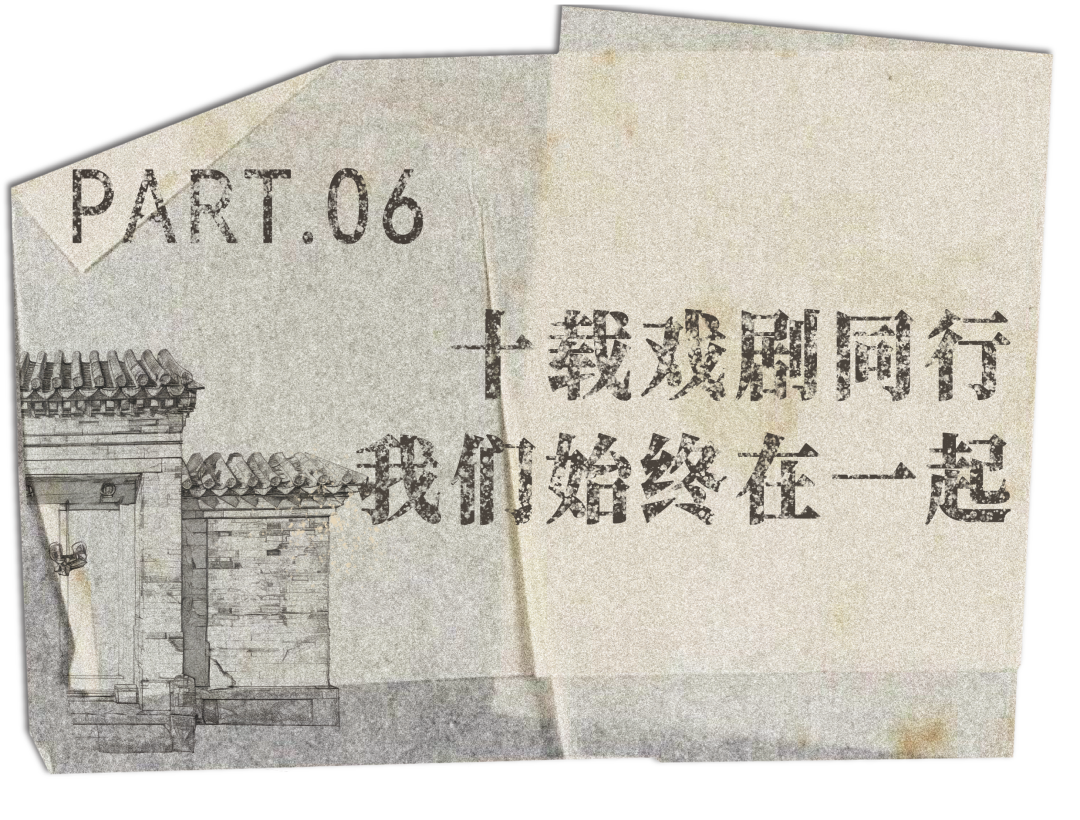 PART.06
十载戏剧同行
我们始终在一起